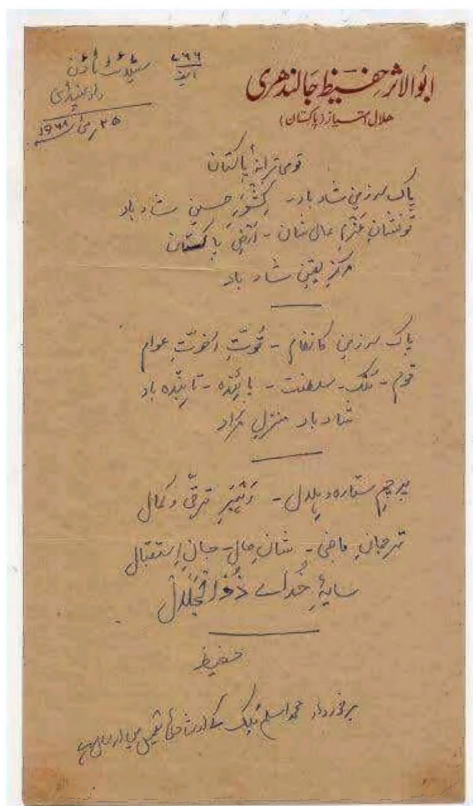 ابوالاثر حفیظ جالندھری
ھلال امتیاز (پاکستان)
۷۸۶
سیٹلائٹ ٹاؤن
راولپنڈی
قومی ترانۂ پاکستان
پاک سرزمین شاد باد - کشورِ حسین شاد باد
تو نشانِ عزمِ عالی شان - ارضِ پاکستان
مرکزِ یقین شاد باد
پاک سرزمین کا نظام - قوتِ اخوتِ عوام
قوم - ملک - سلطنت - پائندہ - تابندہ باد
شاد باد منزلِ مراد
پرچمِ ستارہ و ہلال - رہبرِ ترقی و کمال
ترجمانِ ماضی - شانِ حال - جانِ استقبال
سایۂ خدائے ذوالجلال
حفیظ
برخوردار محمد اسلم ملک کے